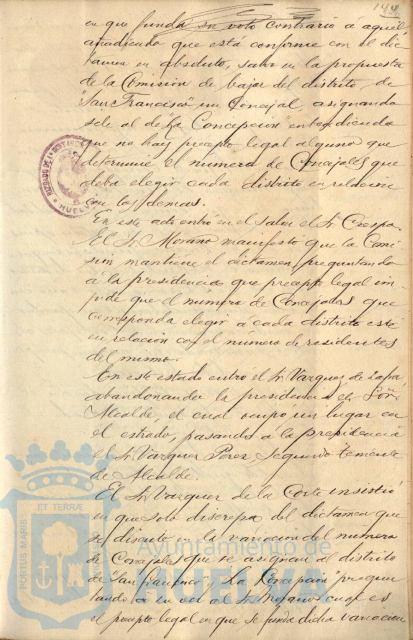 144
en que funda su voto contrario á aquel
añadiendo que está conforme con el dic
tamen en absoluto, salvo en la propuesta
de la Comisión de bajar del distrito, de
"San Francisco" un Concejal, asignando
sele al de "La Concepción" entendiendo
que no hay precepto legal alguno que
determine el número de Concejales que
deba elegir cada distrito en relación
con los demas.
En este acto entró en el salon el Sr. Crespo.
El Sr. Moreno manifestó que la Comi
sion mantiene el dictamen, preguntando
á la presidencia que precepto legal im
pide que el numero de Concejales que
corresponda elegir á cada distrito esté
en relación con el numero de residentes
del mismo.
En este estado entró el Sr. Vazquez de Zafra
abandonando la presidencia el Señor
Alcalde, el cual ocupo un lugar en
el estrado, pasando á la presidencia
el Sr. Vazquez Perez segundo teniente
de Alcalde.
El Sr. Vazquez de la Corte insistió
en que solo discrepa del dictamen que
se discute en la variacion del numero
de Concejales que se asignan al distrito
de "San Francisco" y La Concepción pregun
tando á su vez al Sr. cual es
el precepto legal en que se funda dicha variacion
HUELVA
PORTUS MARIS ET TERRÆ
Ayuntamiento de